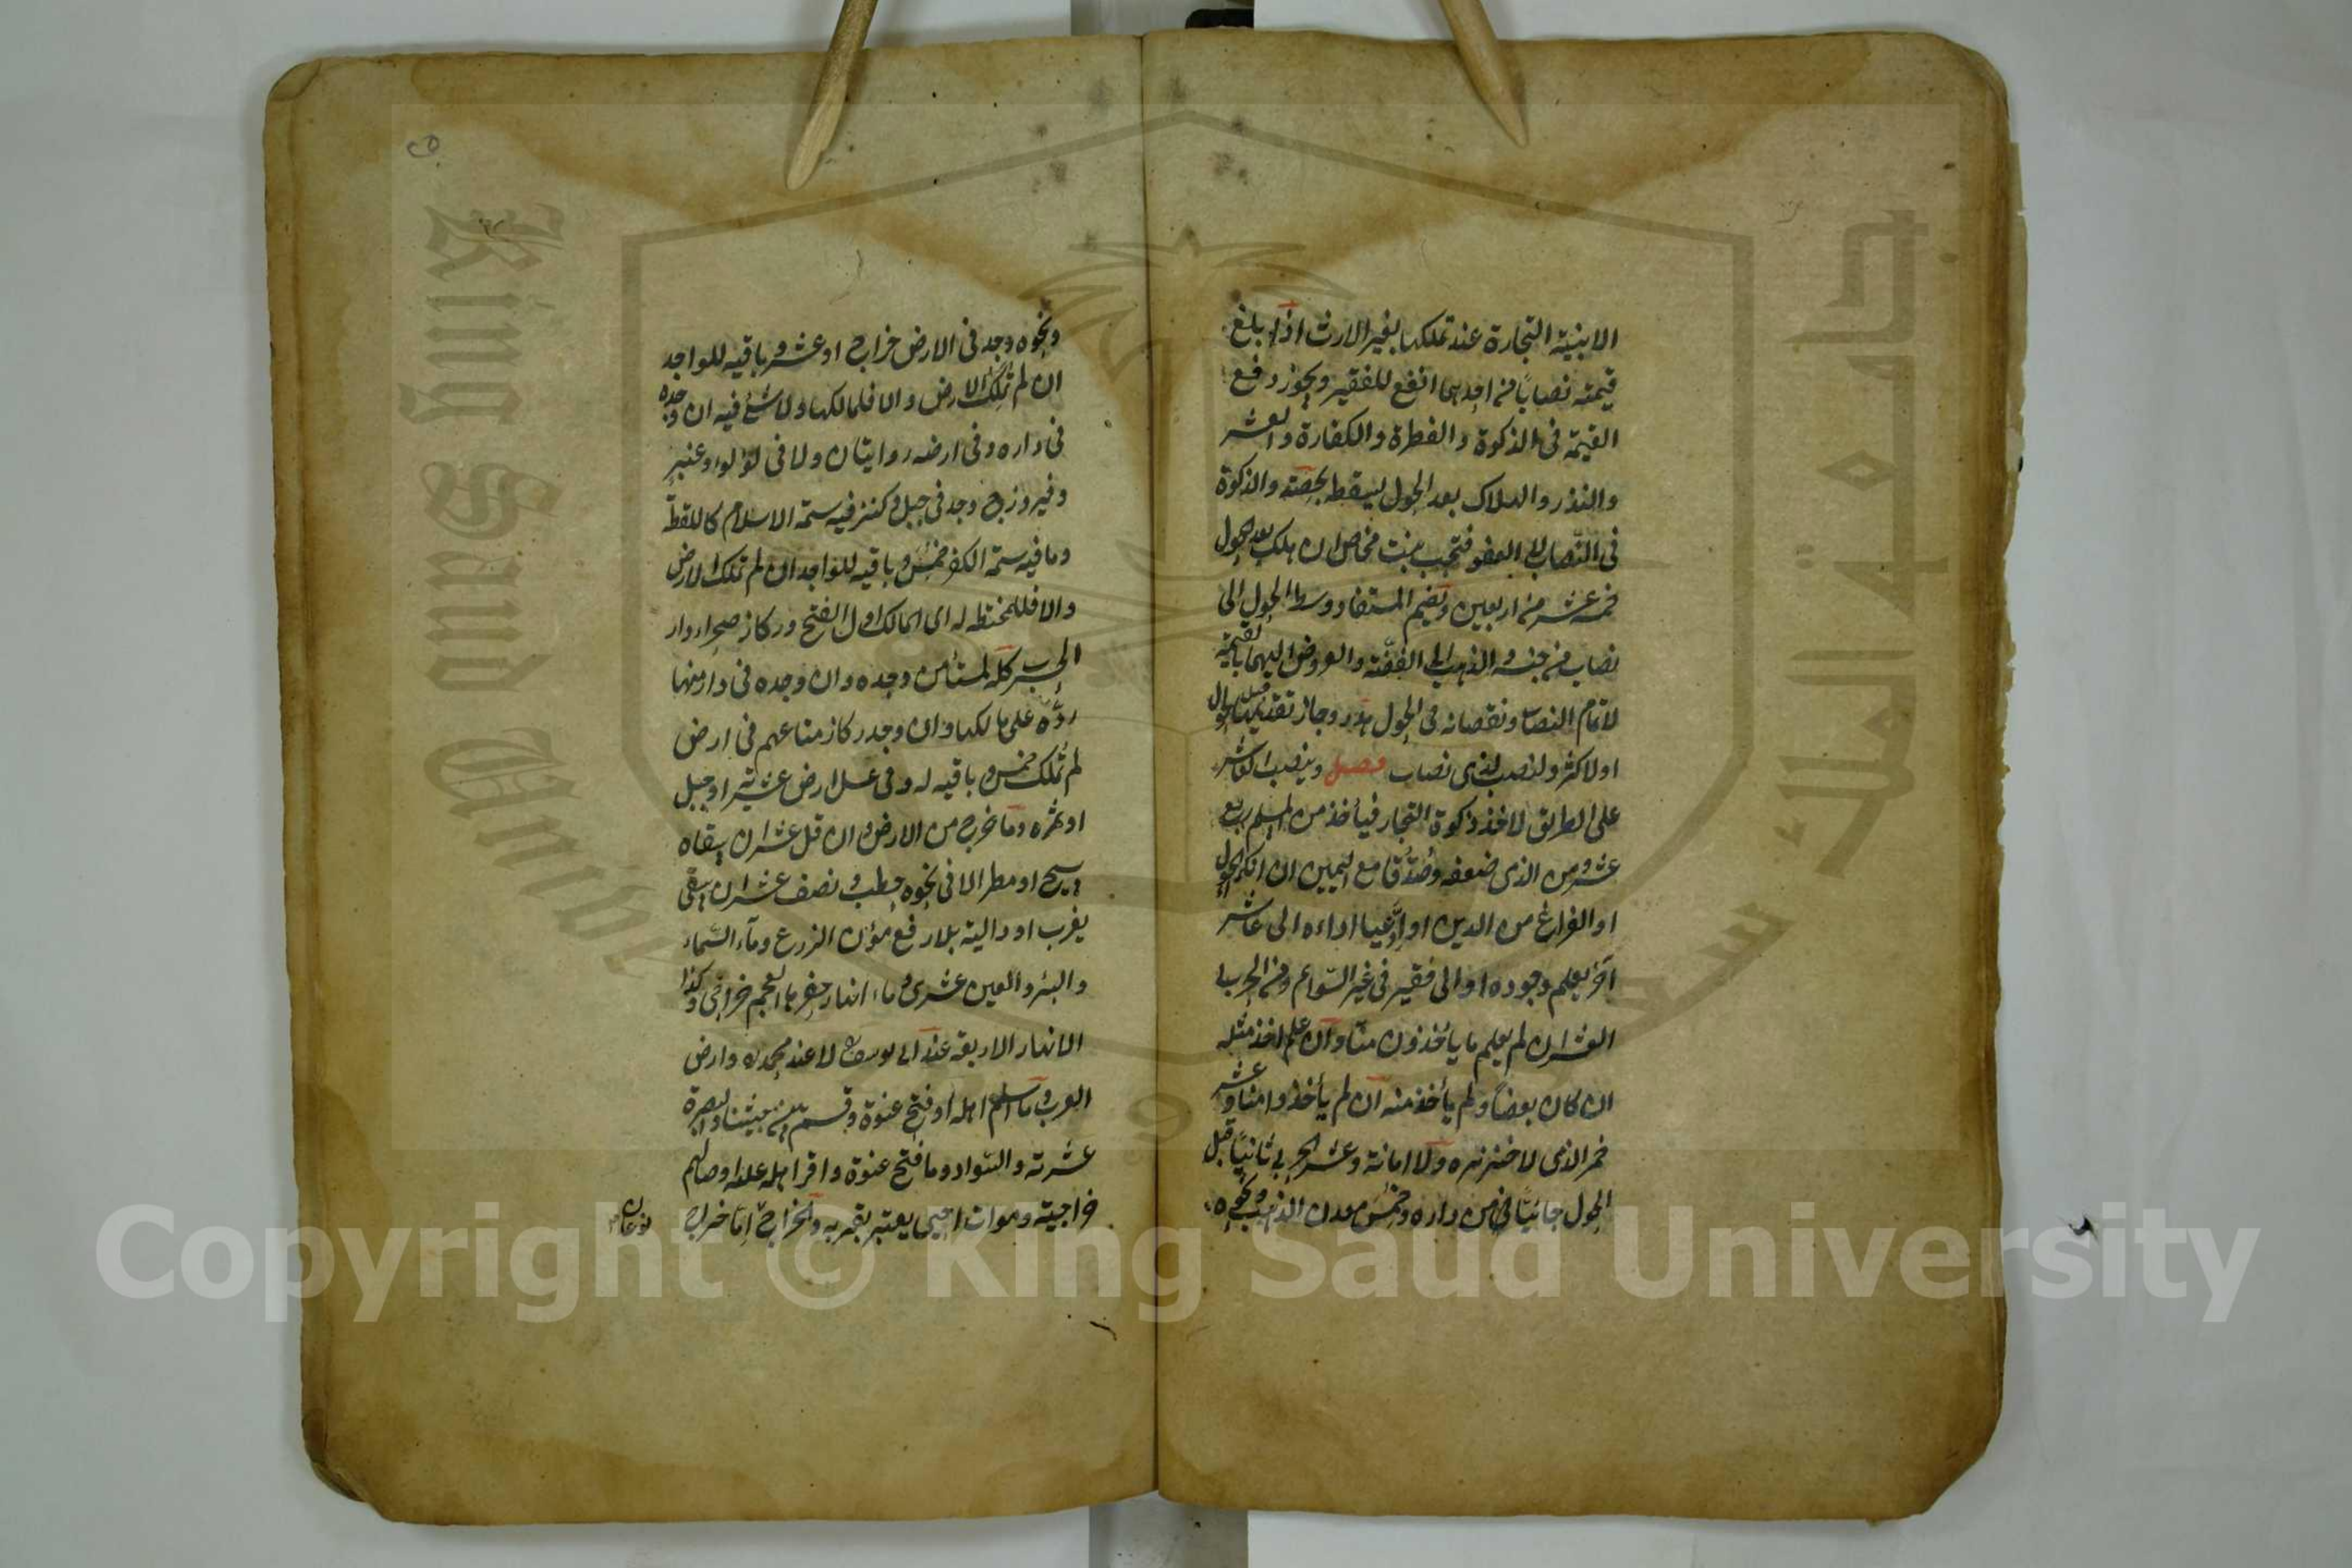 الابنية التجارة عند تملكها بغير الارث اذا بلغ
قيمته نصابًا من احدهما انفع للفقير ويجوز دفع
القيمة فى الزكوة والفطرة والكفارة والعشر
والنذر والهلاك بعد الحول يسقط بحصته والزكوة
فى النّصاب لا العفو فتجب بنت مخاض ان هلك بعد الحول
خمسة عشر من اربعين ويضم المستفاد وسط الحول الى
نصاب من جنسه والذهب الى الفضّة والعروض اليهما بالقيمة
لاتمام النصاب ونقصانه فى الحول هدر وجاز تقديمها لحول
او لاكثر ولنصب لذى نصاب فصل وينصب العاشر
على الطريق لاخذ زكوة التجار فيأخذ من المسلم ربع
عشر ومن الذمى ضعفه وصُدّقا مع اليمين ان انكرا الحول
او الفراغ من الدين او ادّعيا اداءه الى عاشر
آخر يعلم وجوده او الى فقير فى غير السّوائم ومن الحربى
العشر ان لم يعلم ما يأخذون منّا وان علم اخذ مثله
ان كان بعضًا ولم يأخذ منه ان لم يأخذوا منا وعشر
خمر الذمى لا خنزيره ولا امانة وعشر الحربى ثانيًا قبل
الحول جائيًا من داره وخمس معدن الذهب ونحوه
ونحوه وجد فى الارض خراج او عشر وباقيه للواجد
ان لم تملك الارض والا فلمالكها ولا شئ فيه ان وجده
فى داره وفى ارضه روايتان ولا فى لؤلؤ وعنبر
وفيروزج وجد فى جبل وكنز فيه سمة الاسلام كاللقطة
وما فيه سمة الكفر خمس وباقيه للواجد ان لم تملك الارض
والا فللمختط له اى المالك اول الفتح وركاز صحراء دار
الحرب كله لمستأمن وجده وان وجده فى دار منها
ردّه على مالكها وان وجد ركاز متاعهم فى ارض
لم تُملك خمس وباقيه له وفى عسل ارض عشرية او جبل
او ثمره وما خرج من الارض وان قل عشر ان سقاه
سيح او مطر الا فى نحوه حطب ونصف عشر ان يسقى
بغرب او دالية بلا رفع مؤن الزرع وماء السّماء
والبئر والعين عشرى وماء انهار حفرها العجم خراجى وكذا
الانهار الاربعة عند ابى يوسف لا عند محمد وارض
العرب وما اسلم اهله او فتح عنوة وقسم بين جيشنا والبصرة
عشرية والسّواد وما فتح عنوة واقر اهله عليه او صالحهم
خراجية وموات احيى يعتبر بقربه والخراج امّا خراج
نوعان